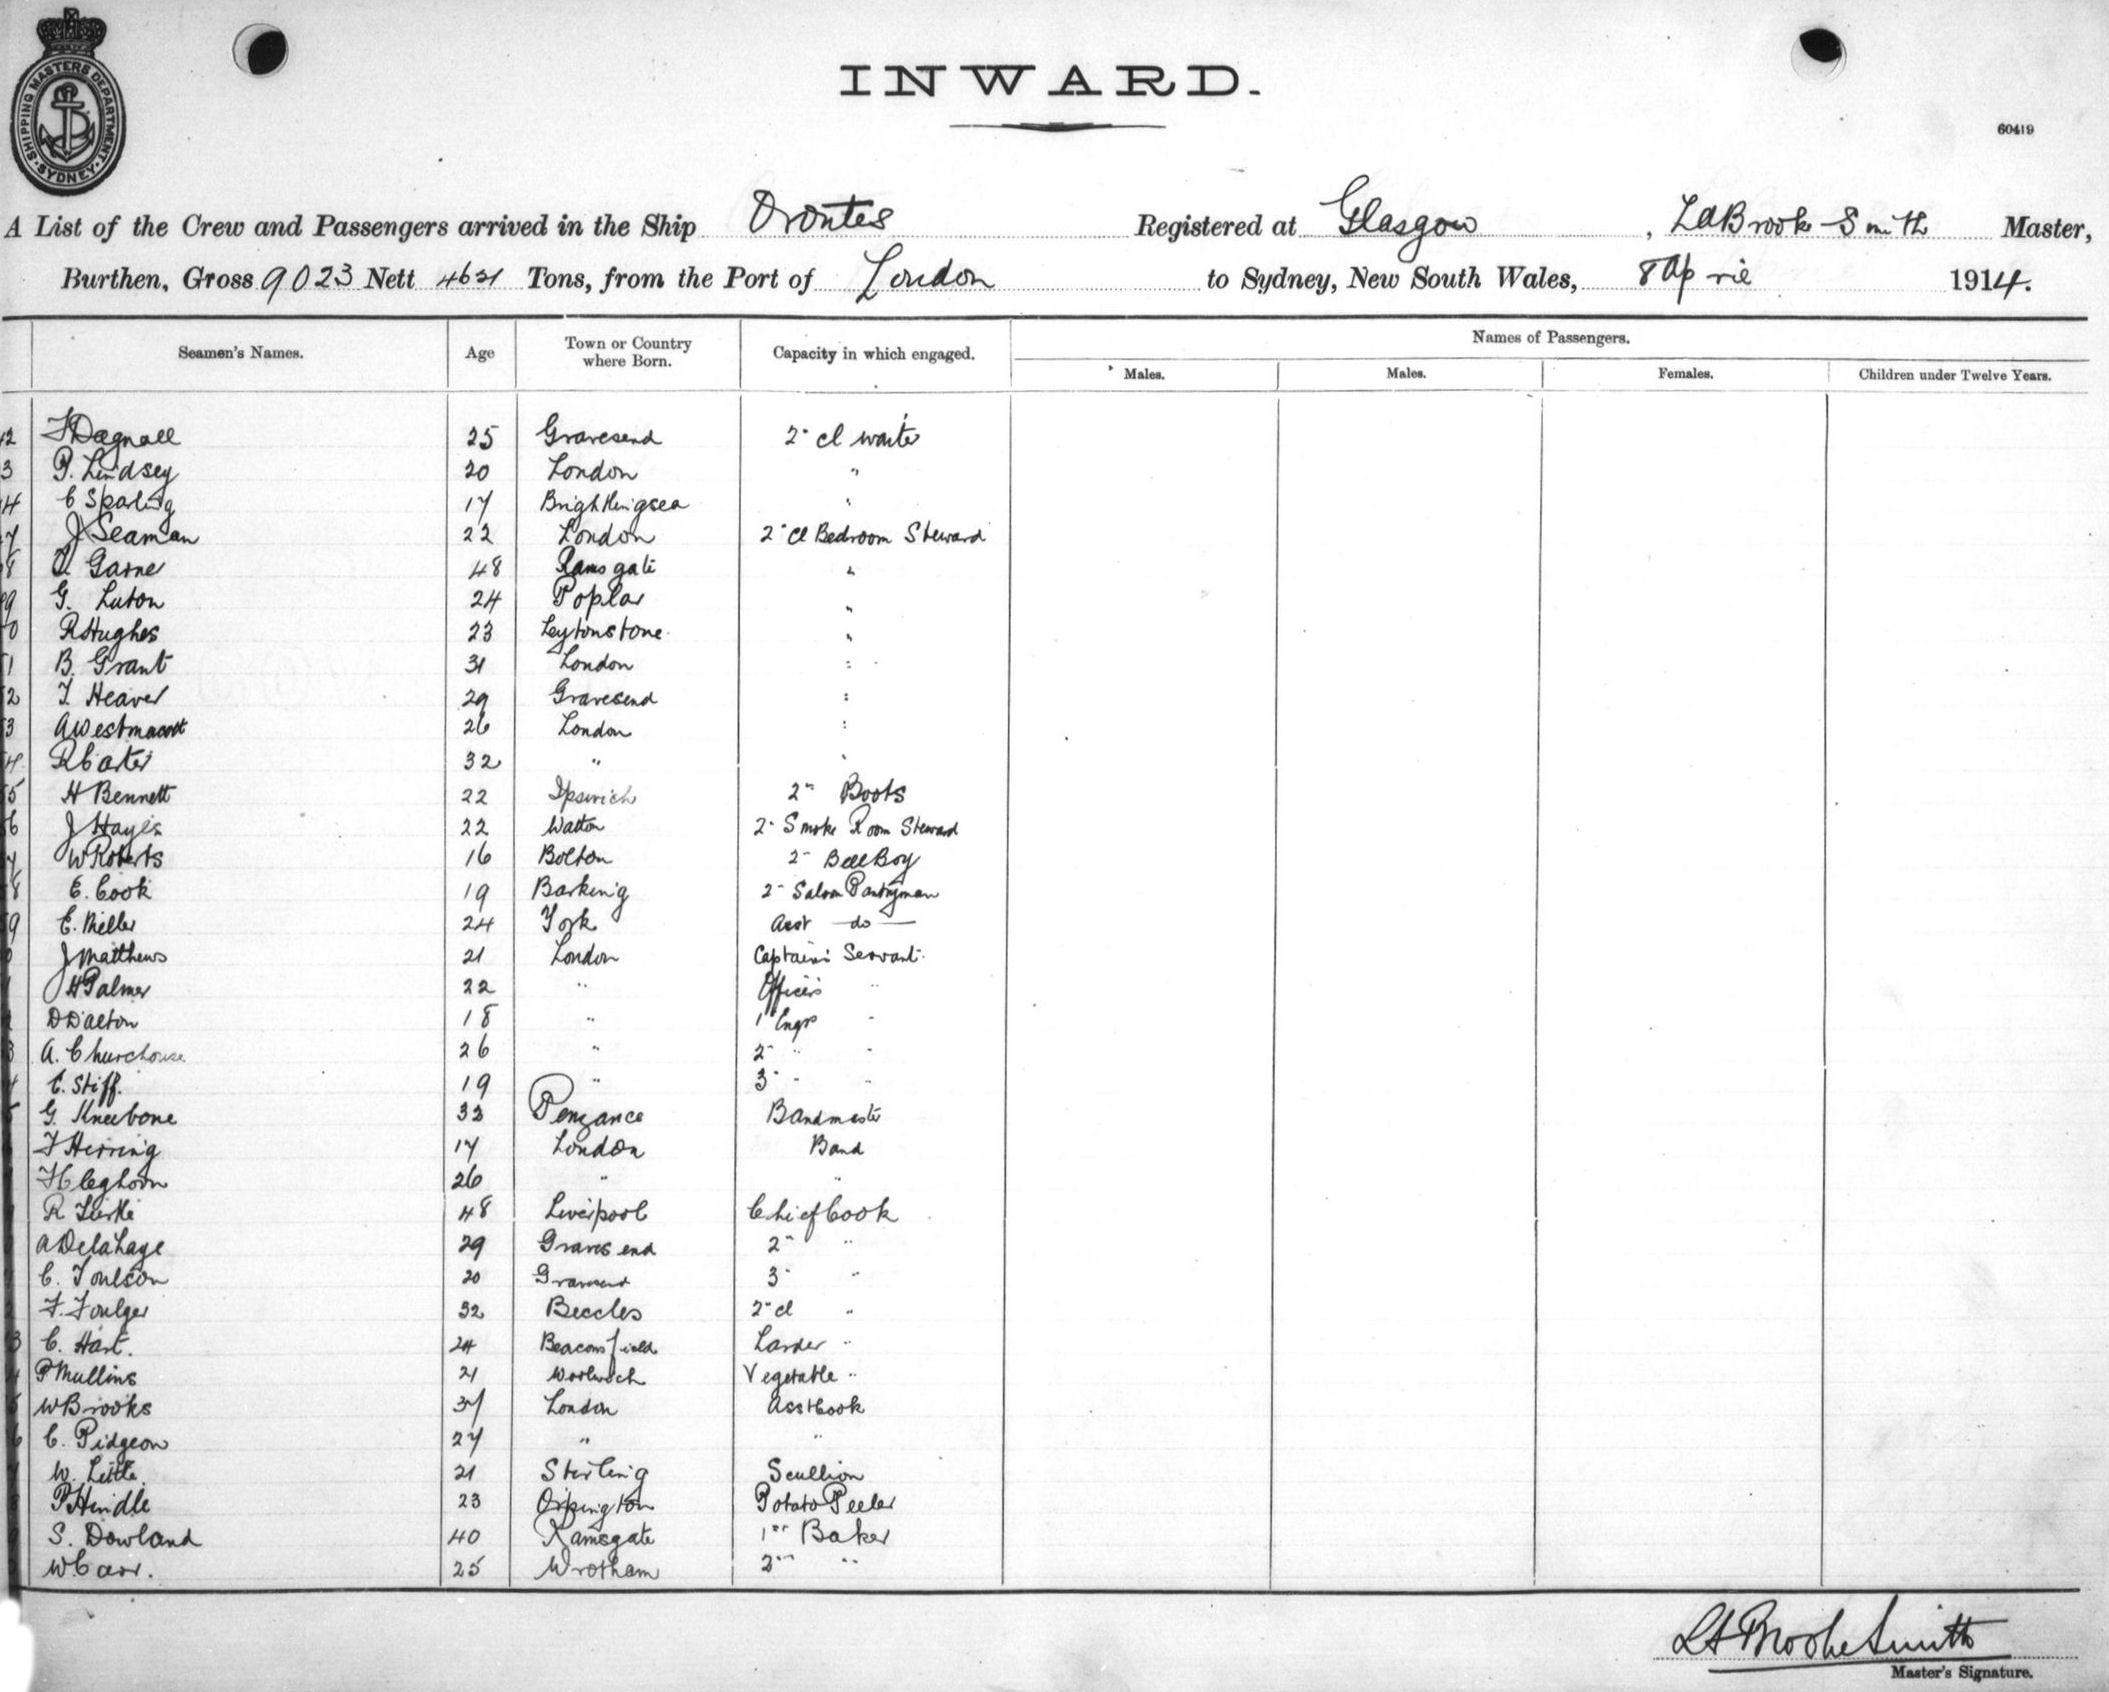 SHIPPING MASTERS DEPARTMENT · SYDNEY ·
INWARD.
60419
A List of the Crew and Passengers arrived in the Ship Orontes Registered at Glasgow , LABrooke-Smith Master,
Burthen, Gross 9023 Nett 4621 Tons, from the Port of London to Sydney, New South Wales, 8 April 1914.
Names of Passengers.
Seamen's Names. Age Town or Country where Born. Capacity in which engaged. Males. Males. Females. Children under Twelve Years.
2 F Dagnall 25 Gravesend 2" cl waiter
3 P. Lindsey 20 London "
4 C Sparling 17 Brightlingsea "
7 J Seaman 22 London 2" Cl Bedroom Steward
8 Garner 48 Ramsgate "
9 G. Luton 24 Poplar "
0 R Hughes 23 Leytonstone "
51 B. Grant 31 London "
52 T. Heaver 29 Gravesend "
53 A Westmacott 26 London "
54 R Carter 32 " "
55 H Bennett 22 Ipswich 2" Boots
56 J Hayes 22 Walton 2" Smoke Room Steward
57 W Roberts 16 Bolton 2" Bell Boy
58 E. Cook 19 Barking 2" Saloon Pantryman
59 E. Miller 24 York Asst — do —
0 J Matthews 21 London Captains Servant
1 H Palmer 22 " Officers "
2 D Dalton 18 " 1" Engrs "
3 A. Churchouse 26 " 2" " "
4 C. Stiff. 19 " 3" " "
5 G. Kneebone 33 Penzance Bandmaster
F Herring 17 London Band
F Cleghorn 26 " "
R 48 Liverpool Chief Cook
A Delahaye 29 Gravesend 2" "
C. Toulson 20 Gravesend 3" "
2 F. Foulger 32 Beccles 2" cl "
3 C. Hart. 24 Beaconsfield Larder "
4 P Mullins 21 Woolwich Vegetable "
5 W Brooks 37 London Asst Cook
6 C. Pidgeon 27 " "
7 W. Little 21 Stirling Scullion
8 P Hindle 23 Orpington Potato Peeler
9 S. Dowland 40 Ramsgate 1st Baker
W Carr. 25 Wrotham 2nd "
LABrookeSmith
Master's Signature.